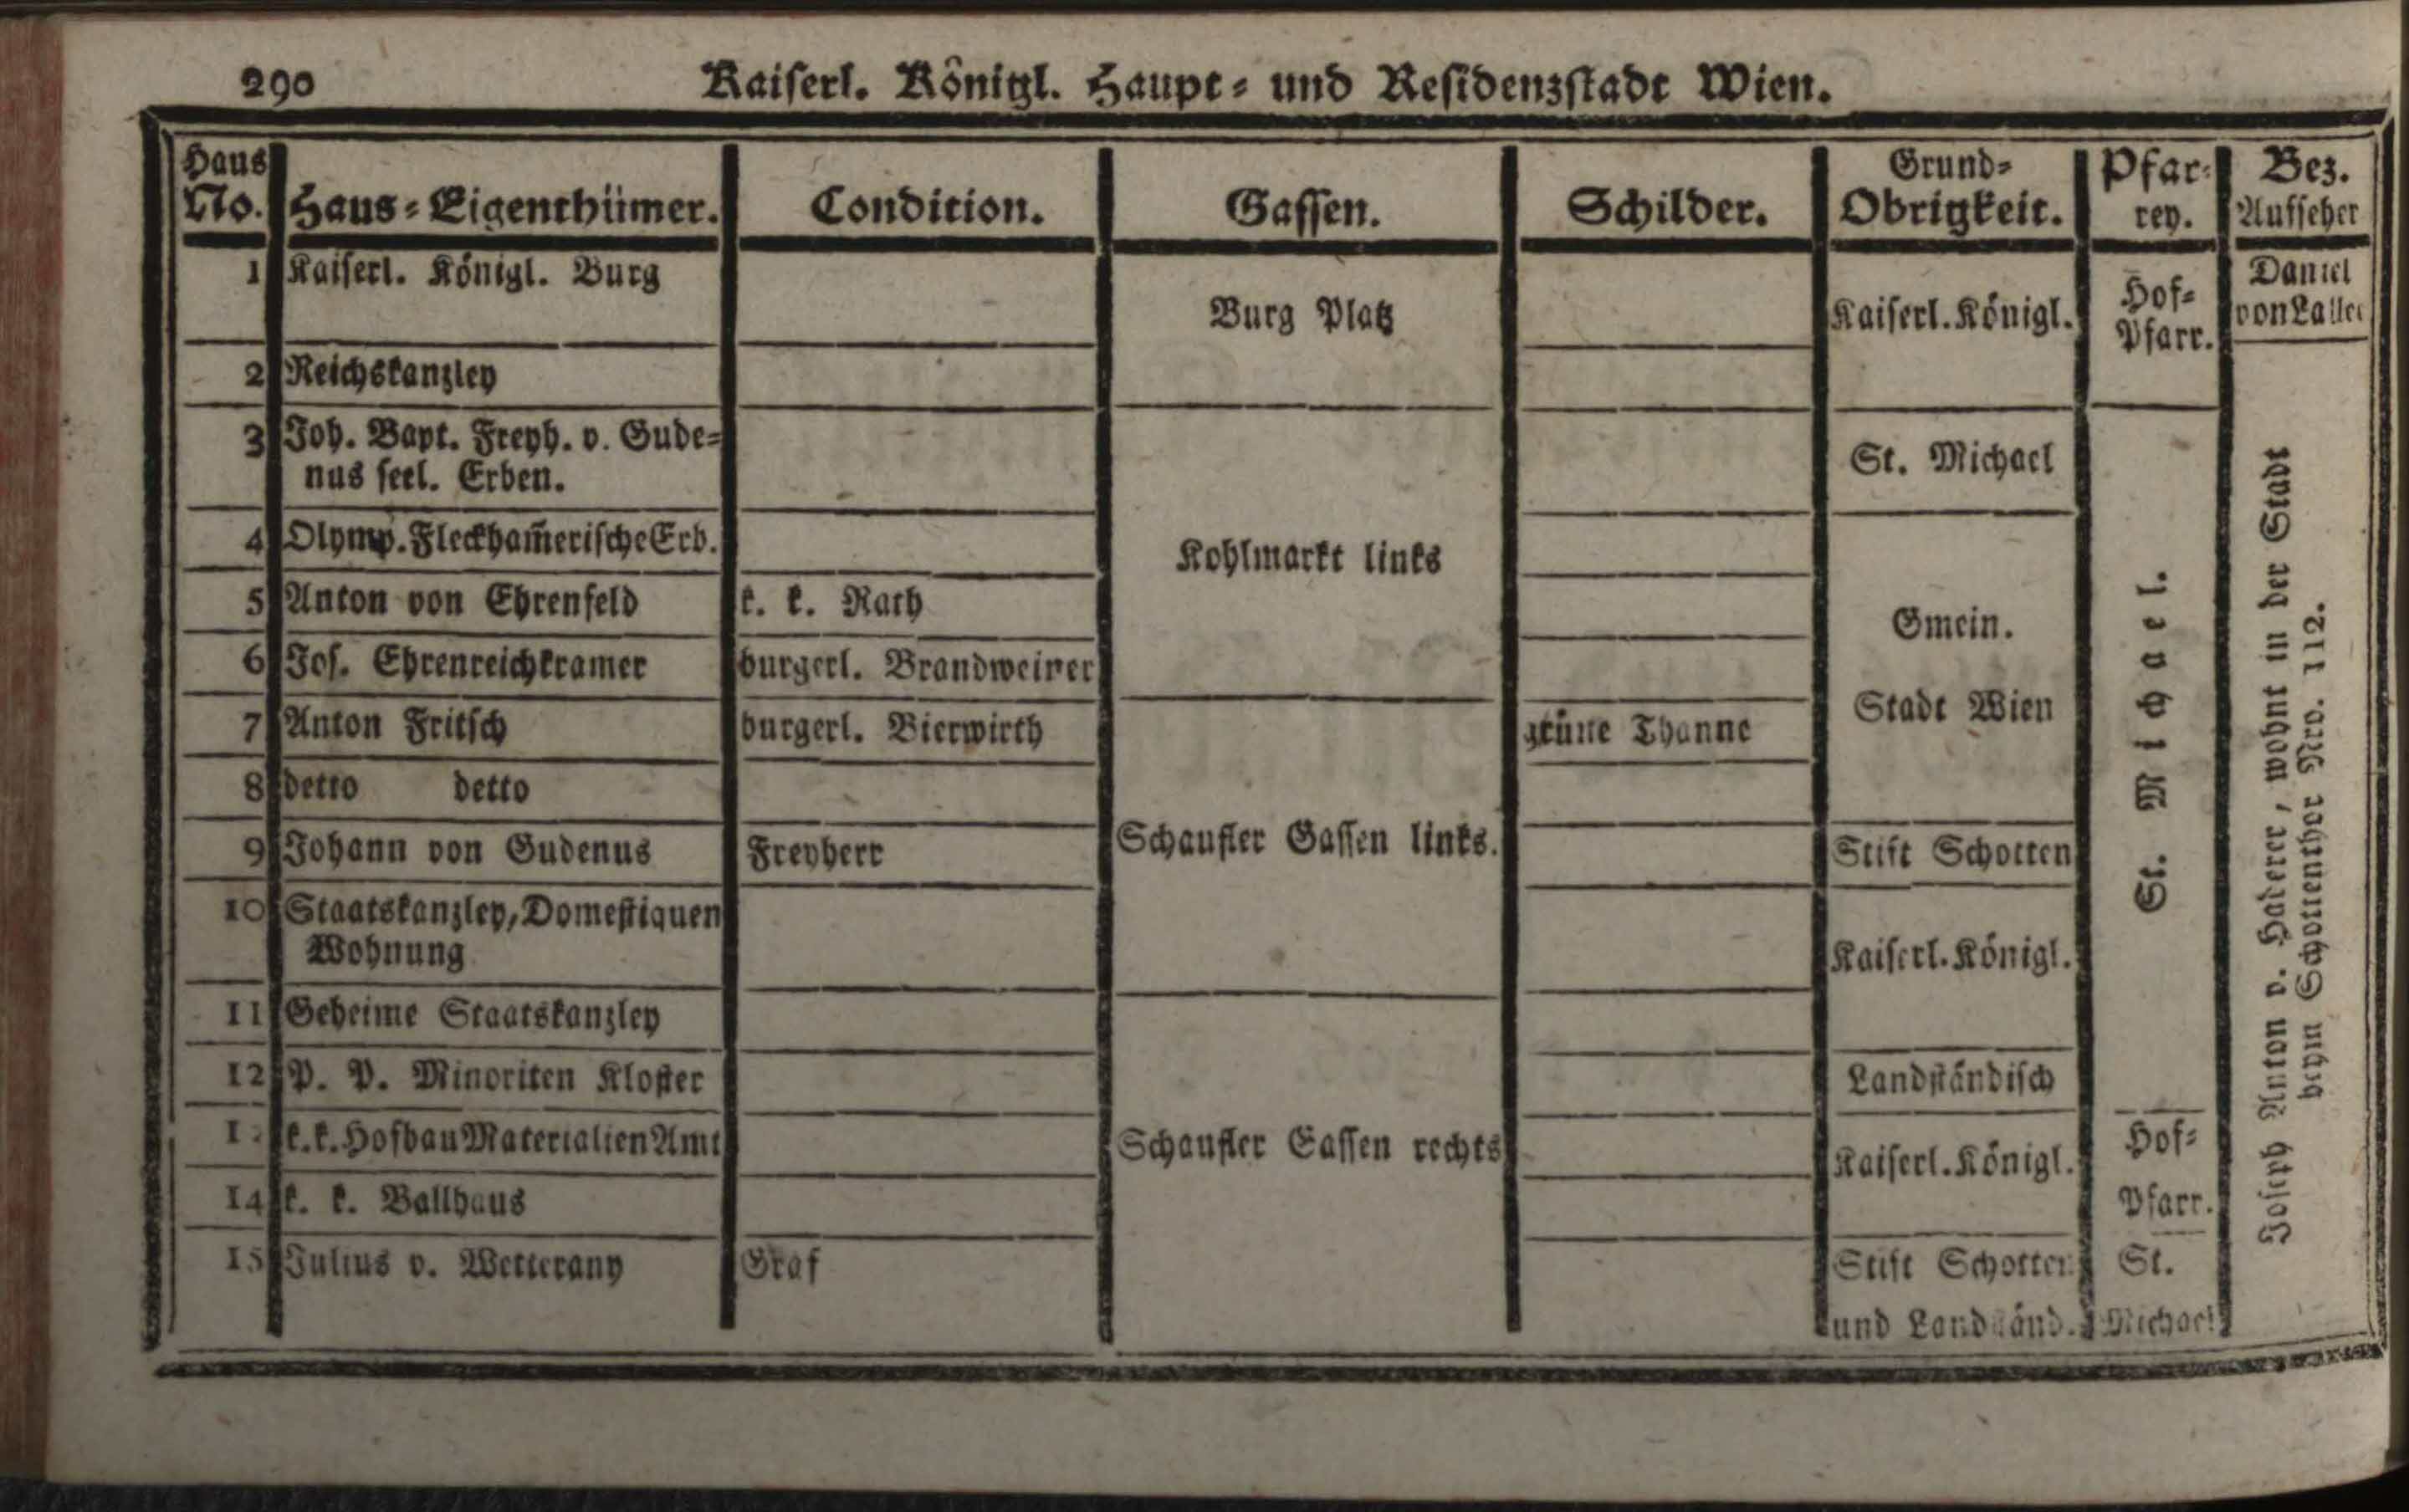 290
Kaiserl. Königl. Haupt- und Residenzstadt Wien.
Haus No. Haus-Eigenthümer. Condition. Gassen. Schilder. Grund-Obrigkeit. Pfar-rey. Bez. Aufseher
1 Kaiserl. Königl. Burg
Burg Platz
Kaiserl. Königl.
Hof-
Pfarr.
Daniel
von
2 Reichskanzley
3 Joh. Bapt. Freyh. v. Gude-
nus seel. Erben.
St. Michael
4 Olymp. Fleckham̄erische Erb.
Kohlmarkt links
5 Anton von Ehrenfeld k. k. Rath
6 Jos. Ehrenreichkramer burgerl. Brandweiner
Gmein.
Stadt Wien
7 Anton Fritsch burgerl. Bierwirth grüne Thanne
8 detto detto
Schaufler Gassen links.
9 Johann von Gudenus Freyherr Stift Schotten
10 Staatskanzley, Domestiquen
Wohnung
Kaiserl. Königl.
11 Geheime Staatskanzley
12 P. P. Minoriten Kloster Landständisch
St. Michael.
k. k. Hofbau Materialien Amt
Schaufler Gassen rechts
Kaiserl. Königl.
Hof-
Pfarr.
14 k. k. Ballhaus
15 Julius v. Wetterany Graf Stift Schotten St.
und Landständ. Michael
Joseph Anton v. Haderer, wohnt in der Stadt
beym Schottenthor Nro. 112.